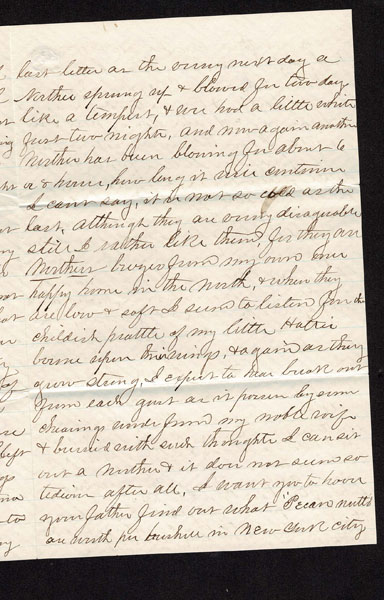 last letter as the verry next day a
Norther sprung up & blowed for two day
like a tempest, & we had a little white
frost two nights, and now again another
Norther has been blowing for about 6
or 8 hours, how long it will continue
I cant say, it is not so cold as the
last, although they are verry disagreable
still I rather like them, for they are
Northern breezes from my own one
happy home in the North, & when they
are low & soft I seem to listen for the
childish prattle of my little Hattie
borne upon their wings, & again as they
grow strong, I expect to hear break out
from each gust as it passes by some
chearing words from my noble wife
& buried with such thoughts I can sit
out a Norther & it does not seem so
tedious after all, I want you to have
your father find out what Pecan nutts
are worth per bushel in New York City